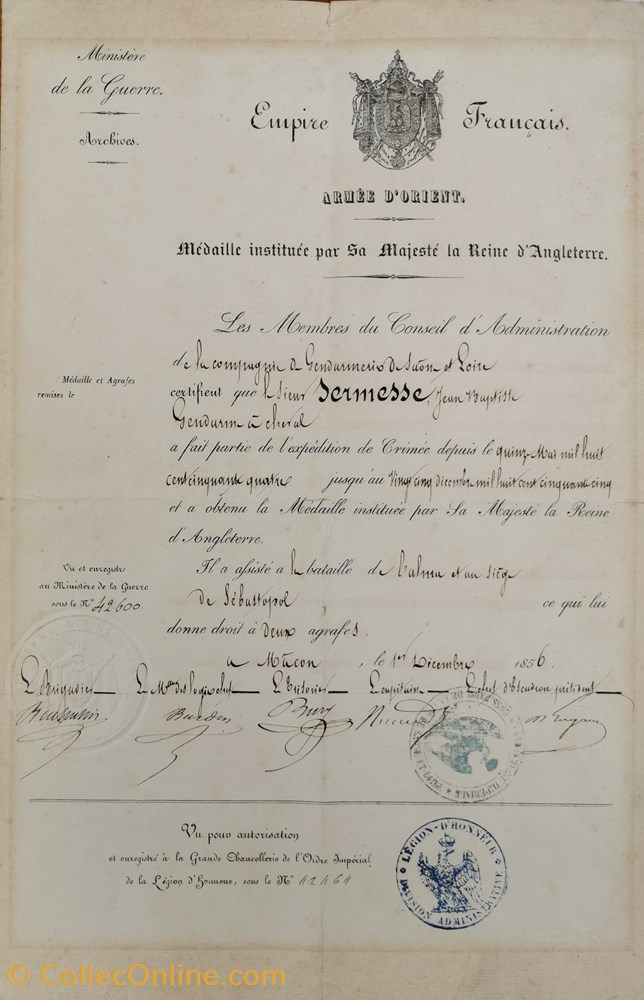 Ministère
de la Guerre.
Archives.
Empire Français.
ARMÉE D'ORIENT.
Médaille instituée par Sa Majesté la Reine d'Angleterre.
Les Membres du Conseil d'Administration
de la compagnie de Gendarmerie de Saône et Loire
Médaille et Agrafes
remises le
certifient que le sieur Sermesse, Jean Baptiste
Gendarme à cheval
a fait partie de l'expédition de Crimée depuis le quinze Mai mil huit
cent cinquante quatre jusqu'au vingt cinq décembre mil huit cent cinquante cinq
et a obtenu la Médaille instituée par Sa Majesté la Reine
d'Angleterre.
Vu et enregistré
au Ministère de la Guerre
sous le N° 42600.
Il a assisté à la bataille de l'alma et au siège
de Sébastopol ce qui lui
donne droit à deux agrafes.
à Mâcon, le 1er Décembre 1856.
Le Brigadier Le Mal des logis chef Le Trésorier Le capitaine Le chef d'Escadron président
Vu pour autorisation
et enregistré à la Grande Chancellerie de l'Ordre Impérial
de la Légion d'Honneur, sous le N° 42461
LÉGION-D'HONNEUR
DIVISION ADMINISTRATIVE
© CollecOnline.com